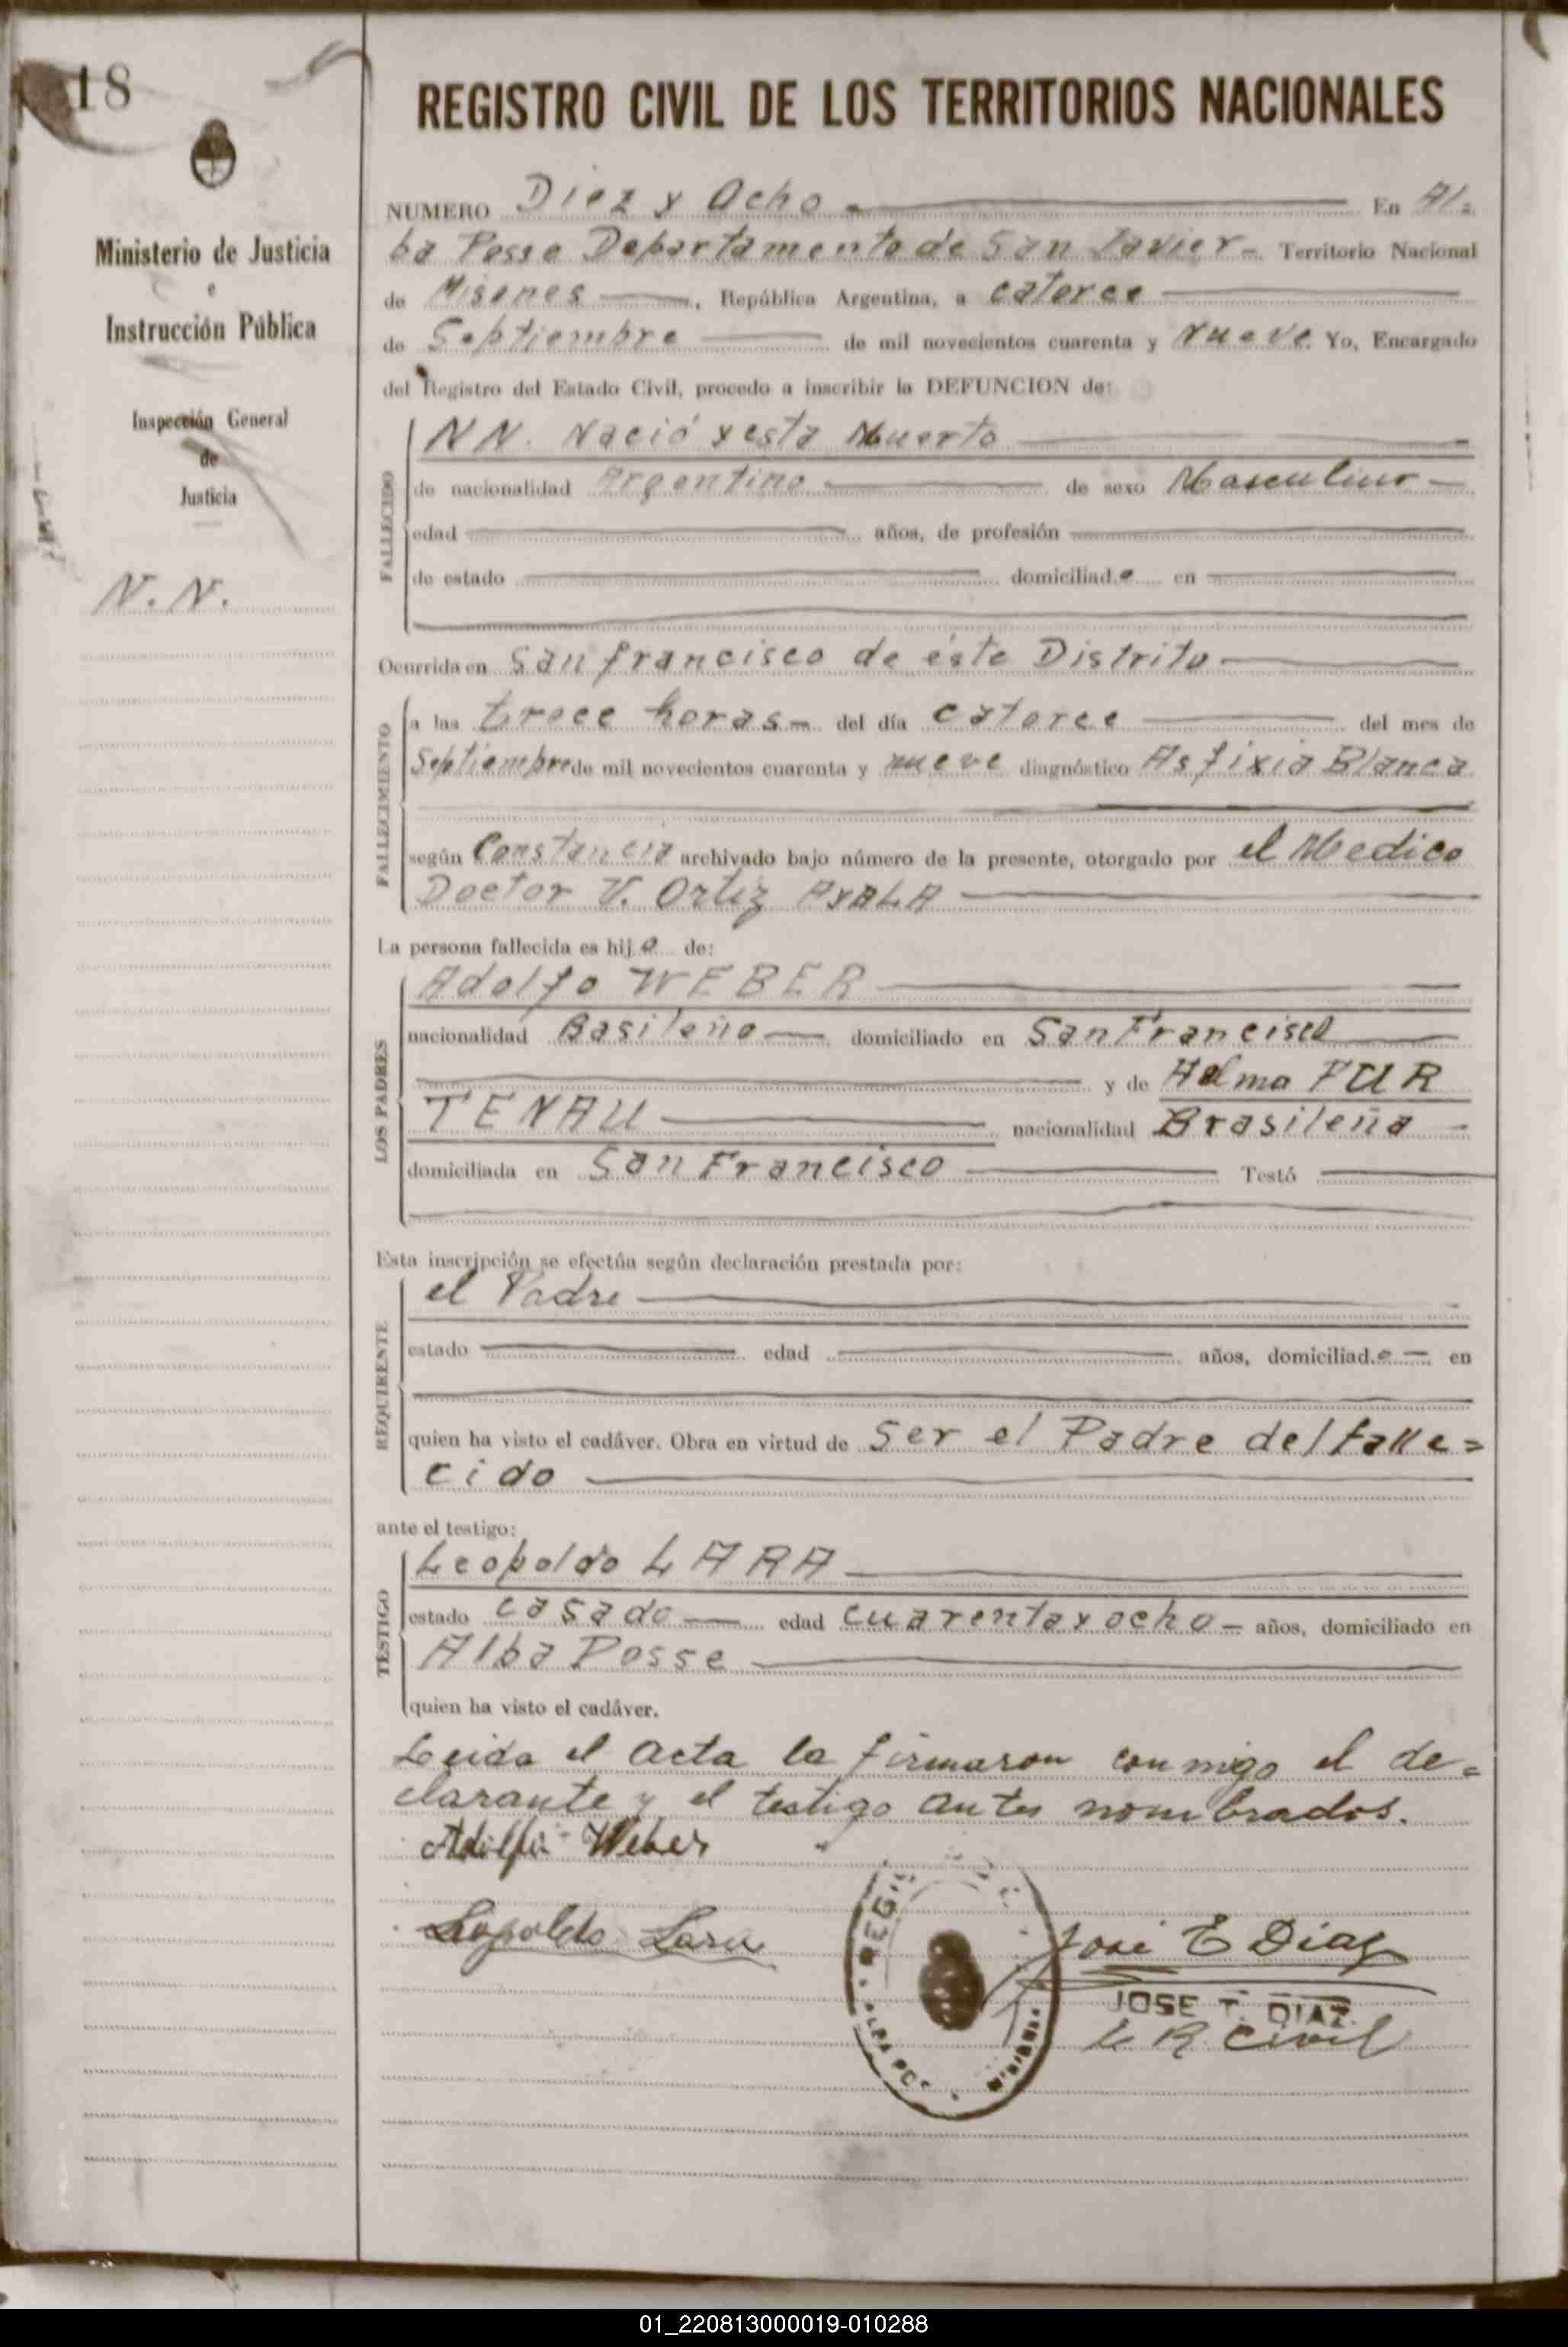 18
Ministerio de Justicia
e
Instrucción Pública
Inspección General
de
Justicia
N. N.
REGISTRO CIVIL DE LOS TERRITORIOS NACIONALES
NUMERO Diez y Ocho En Al=
ba Posse Departamento de San Javier Territorio Nacional
de Misones, República Argentina, a catorce
de Septiembre de mil novecientos cuarenta y nueve. Yo, Encargado
del Registro del Estado Civil, procedo a inscribir la DEFUNCION de:
FALLECIDO
NN. Nació y esta Muerto
de nacionalidad Argentino de sexo Masculino
edad años, de profesión
de estado domiciliad.o en
Ocurrida en San francisco de éste Distrito
FALLECIMIENTO
a las trece horas del día catorce del mes de
Septiembre de mil novecientos cuarenta y nueve diagnóstico Asfixia Blanca
según Constancia archivado bajo número de la presente, otorgado por el Medico
Doctor V. Ortiz AYALA
La persona fallecida es hij.o de:
LOS PADRES
Adolfo WEBER
nacionalidad Basileño domiciliado en San Francisco
y de Helma FUR
TENAU nacionalidad Brasileña
domiciliada en San Francisco Testó
Esta inscripción se efectúa según declaración prestada por:
REQUIRENTE
el Padre
estado edad años, domiciliad.o en
quien ha visto el cadáver. Obra en virtud de Ser el Padre del falle=
cido
ante el testigo:
TESTIGO
Leopoldo LARA
estado casado edad cuarenta y ocho años, domiciliado en
Alba Posse
quien ha visto el cadáver.
Leida el acta la firmaron conmigo el de=
clarante y el testigo antes nombrados.
Adolfo Weber
Leopoldo Lara
REGIS
ALBA POS
José E Diaz
JOSE T. DIAZ
E R. Civil
01_220813000019-010288